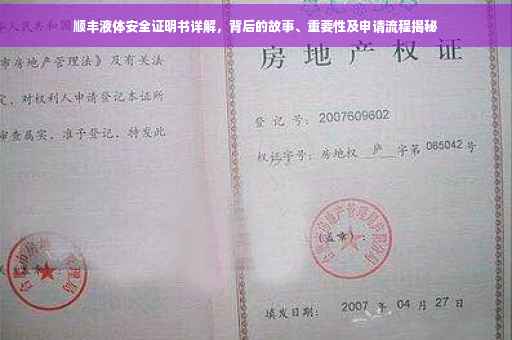 顺丰液体安全证明书详解，背后的故事、重要性及申请流程揭秘
市房地产管理法》及有关法
定，对权利人申请登记本证所
审查属实，准予登记，特发此
房地产权证
登记号：2007609602
权证字号：房地权 庐 字第 065042 号
（盖章）：
填发日期： 2007 年 04 月 27 日